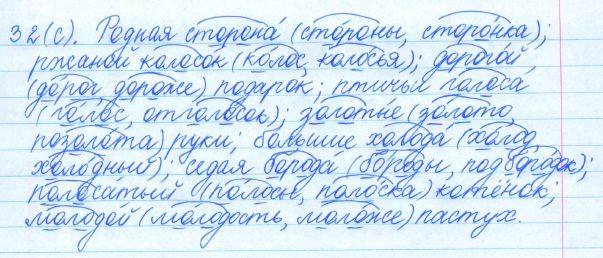 32(с). Родная сторона́ (сто́роны, сторо́нка);
ржаной колосо́к (ко́лос, коло́сья); дорого́й
(до́рог, доро́же) подарок; птичьи голоса́
(го́лос, отголо́сок); золоты́е (зо́лото,
позоло́та) руки; большие холода́ (хо́лод,
холо́дный); седая борода́ (бо́роды, подборо́док);
полоса́тый (по́лосы, поло́ска) котёнок;
молодо́й (мо́лодость, моло́же) пастух.